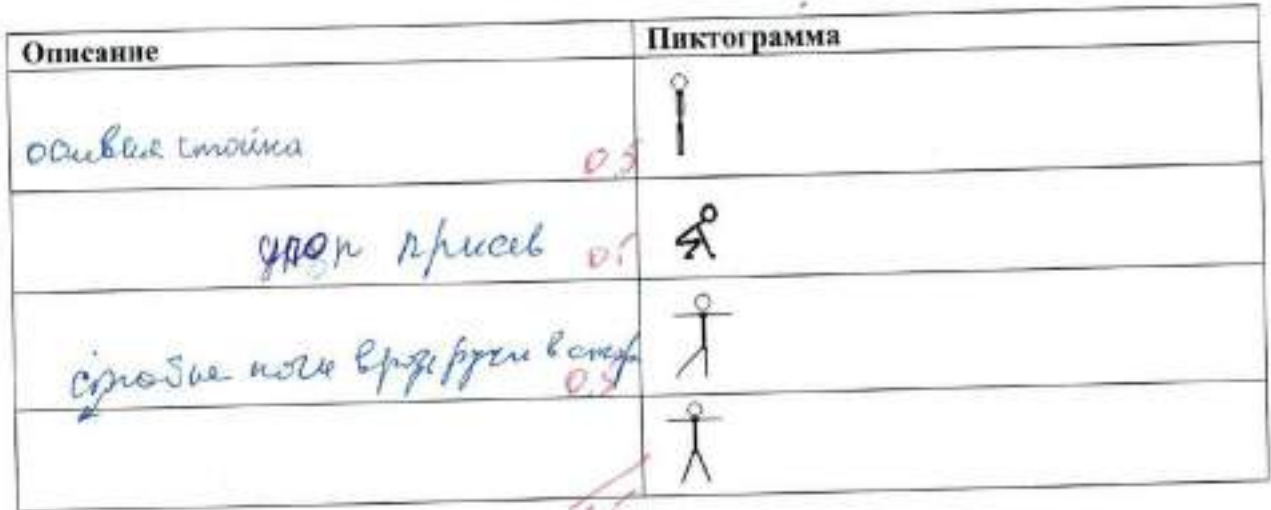 Описание
Пиктограмма
стойка
0,5
упор присев
0,5
ноги врозь руки в стор
0,5